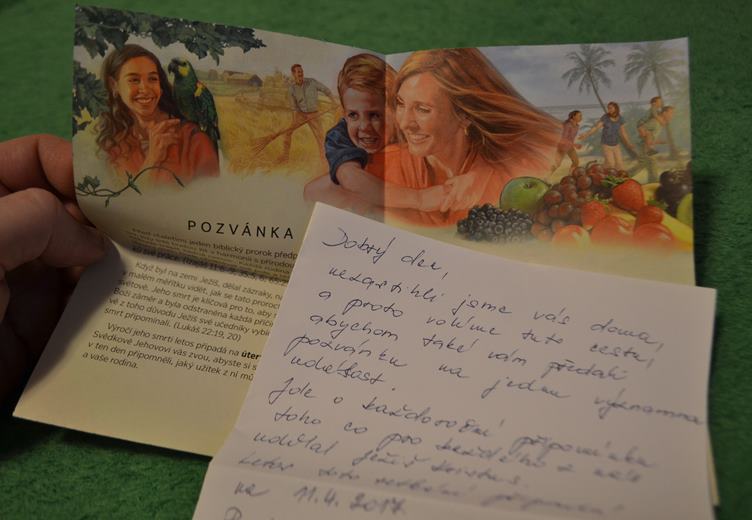 POZVÁNKA
jeden biblický prorok předp
Když byl na zemi Ježíš, dělal zázraky,
v malém měřítku vidět, jak se tato proroc
světku. Jeho smrt je klíčová pro to, aby
Boží záměr a byla odstraněna každá příč
vě z toho důvodu Ježíš své učedníky vybí
smrt připomínali. (Lukáš 22:19, 20)
Výročí jeho smrti letos připadá na úter
Svědkové Jehovovi vás zvou, abyste si s
v ten den připomněli, jaký užitek z ní mů
a vaše rodina.
Dobrý den,
nezastihli jsme vás doma,
a proto volíme tuto cestu,
abychom také vám předali
pozvánku na jednu významnou
událost.
Jde o každoroční připomínku
toho co pro každého z nás
udělal Ježíš Kristus.
Letos toto
na 11.4. 2017